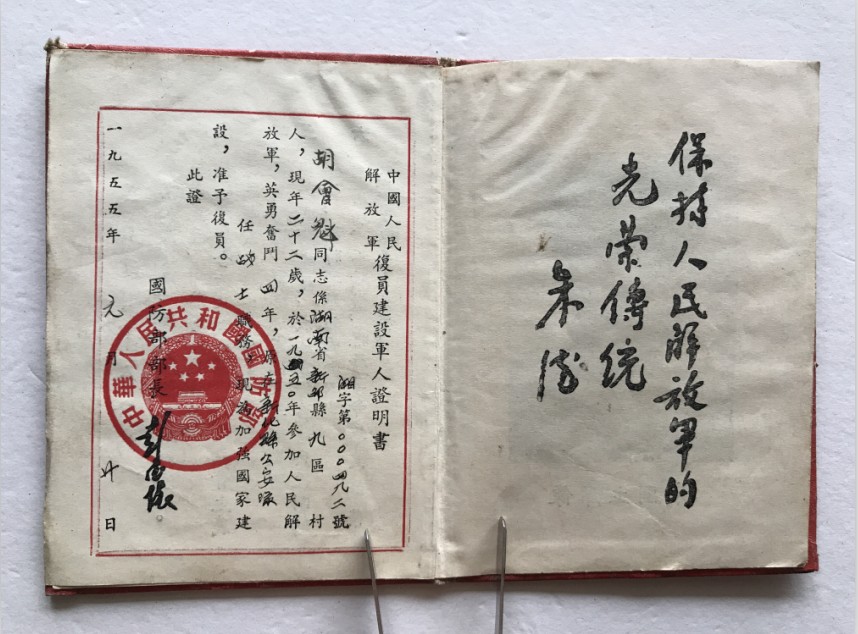 保持人民解放軍的
光荣傳统
朱德
中國人民
解放軍
復員建設軍人證明書
湘字第〇〇〇四九二號
胡會魁同志係湖南省新邵縣九區 村
人，現年二十二歲，於一九五〇年参加人民解
放軍，英勇奮鬥四年，原在新化縣公安隊
任战士職務，現為加強國家建
設，准予復員。
此證
國防部部長 彭德懷
一九五五年元月廿日
中華人民共和國國防部